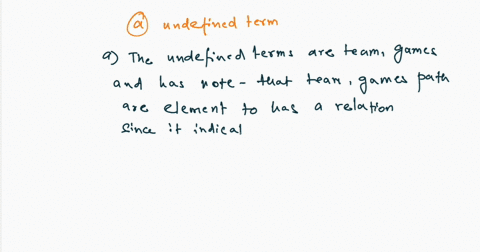 (a) undefined term
a) The undefined terms are team, games
and has note - that team, games path
are element to has a relation
since it indicat